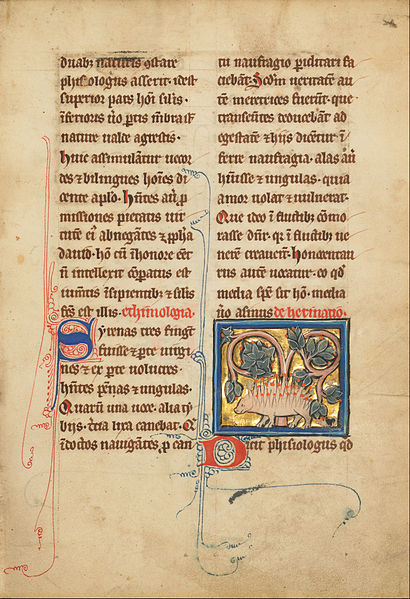 duab; naturis ꝯstare
phisiologus asserit. idest
superior pars hoı̄s siliſ.
ı̄ferioris ů ꝑtis mı̄bra sı̄t
nature ualde agrestis.
huic assimilāt̄ uecor
des & bilingues hoı̄es di
cente aplo. hn̄tes aū̄ ꝓ
missiones pietatis uir
tutē eı᾽ abnegātes & ꝓpha
dauid. hō cū ı̄ honore eēt
n̄ intellexit cōparatus est
iumtis ı̄sipientib; & silis
fc̄s est illis. ethimologia.
Syrenas tres fingūt
fuisse & ꝑte uirgi
nes & ex ꝑte uolucres
hn̄tes pēnas & ungulas.
Quarū una uoce. alia ty
bijs. tcīa lira canebat. Q̄
ı̄doctos nauigātes. ꝑ can
tu naufragio ꝑiclitari fa
ciebāt. Scdm ueritatē au
tē meretrices fuerūt. que
transeūtes deducebāt ad
egestatē & hijs dicētur ı̄
ferre naufragia. alas aū̄
huisse & ungulas. quia
amor uolat & uulnerat.
Que ideo ı̄ fluctib; cōmo
rasse dn̄r. qr ı̄ fluctib; ue
nerē creauerūt. honocentau
rus autē uocatur. eo qd
media spē sit hō. media
uō asinus de herinatio.
Dicit phisiologus qd